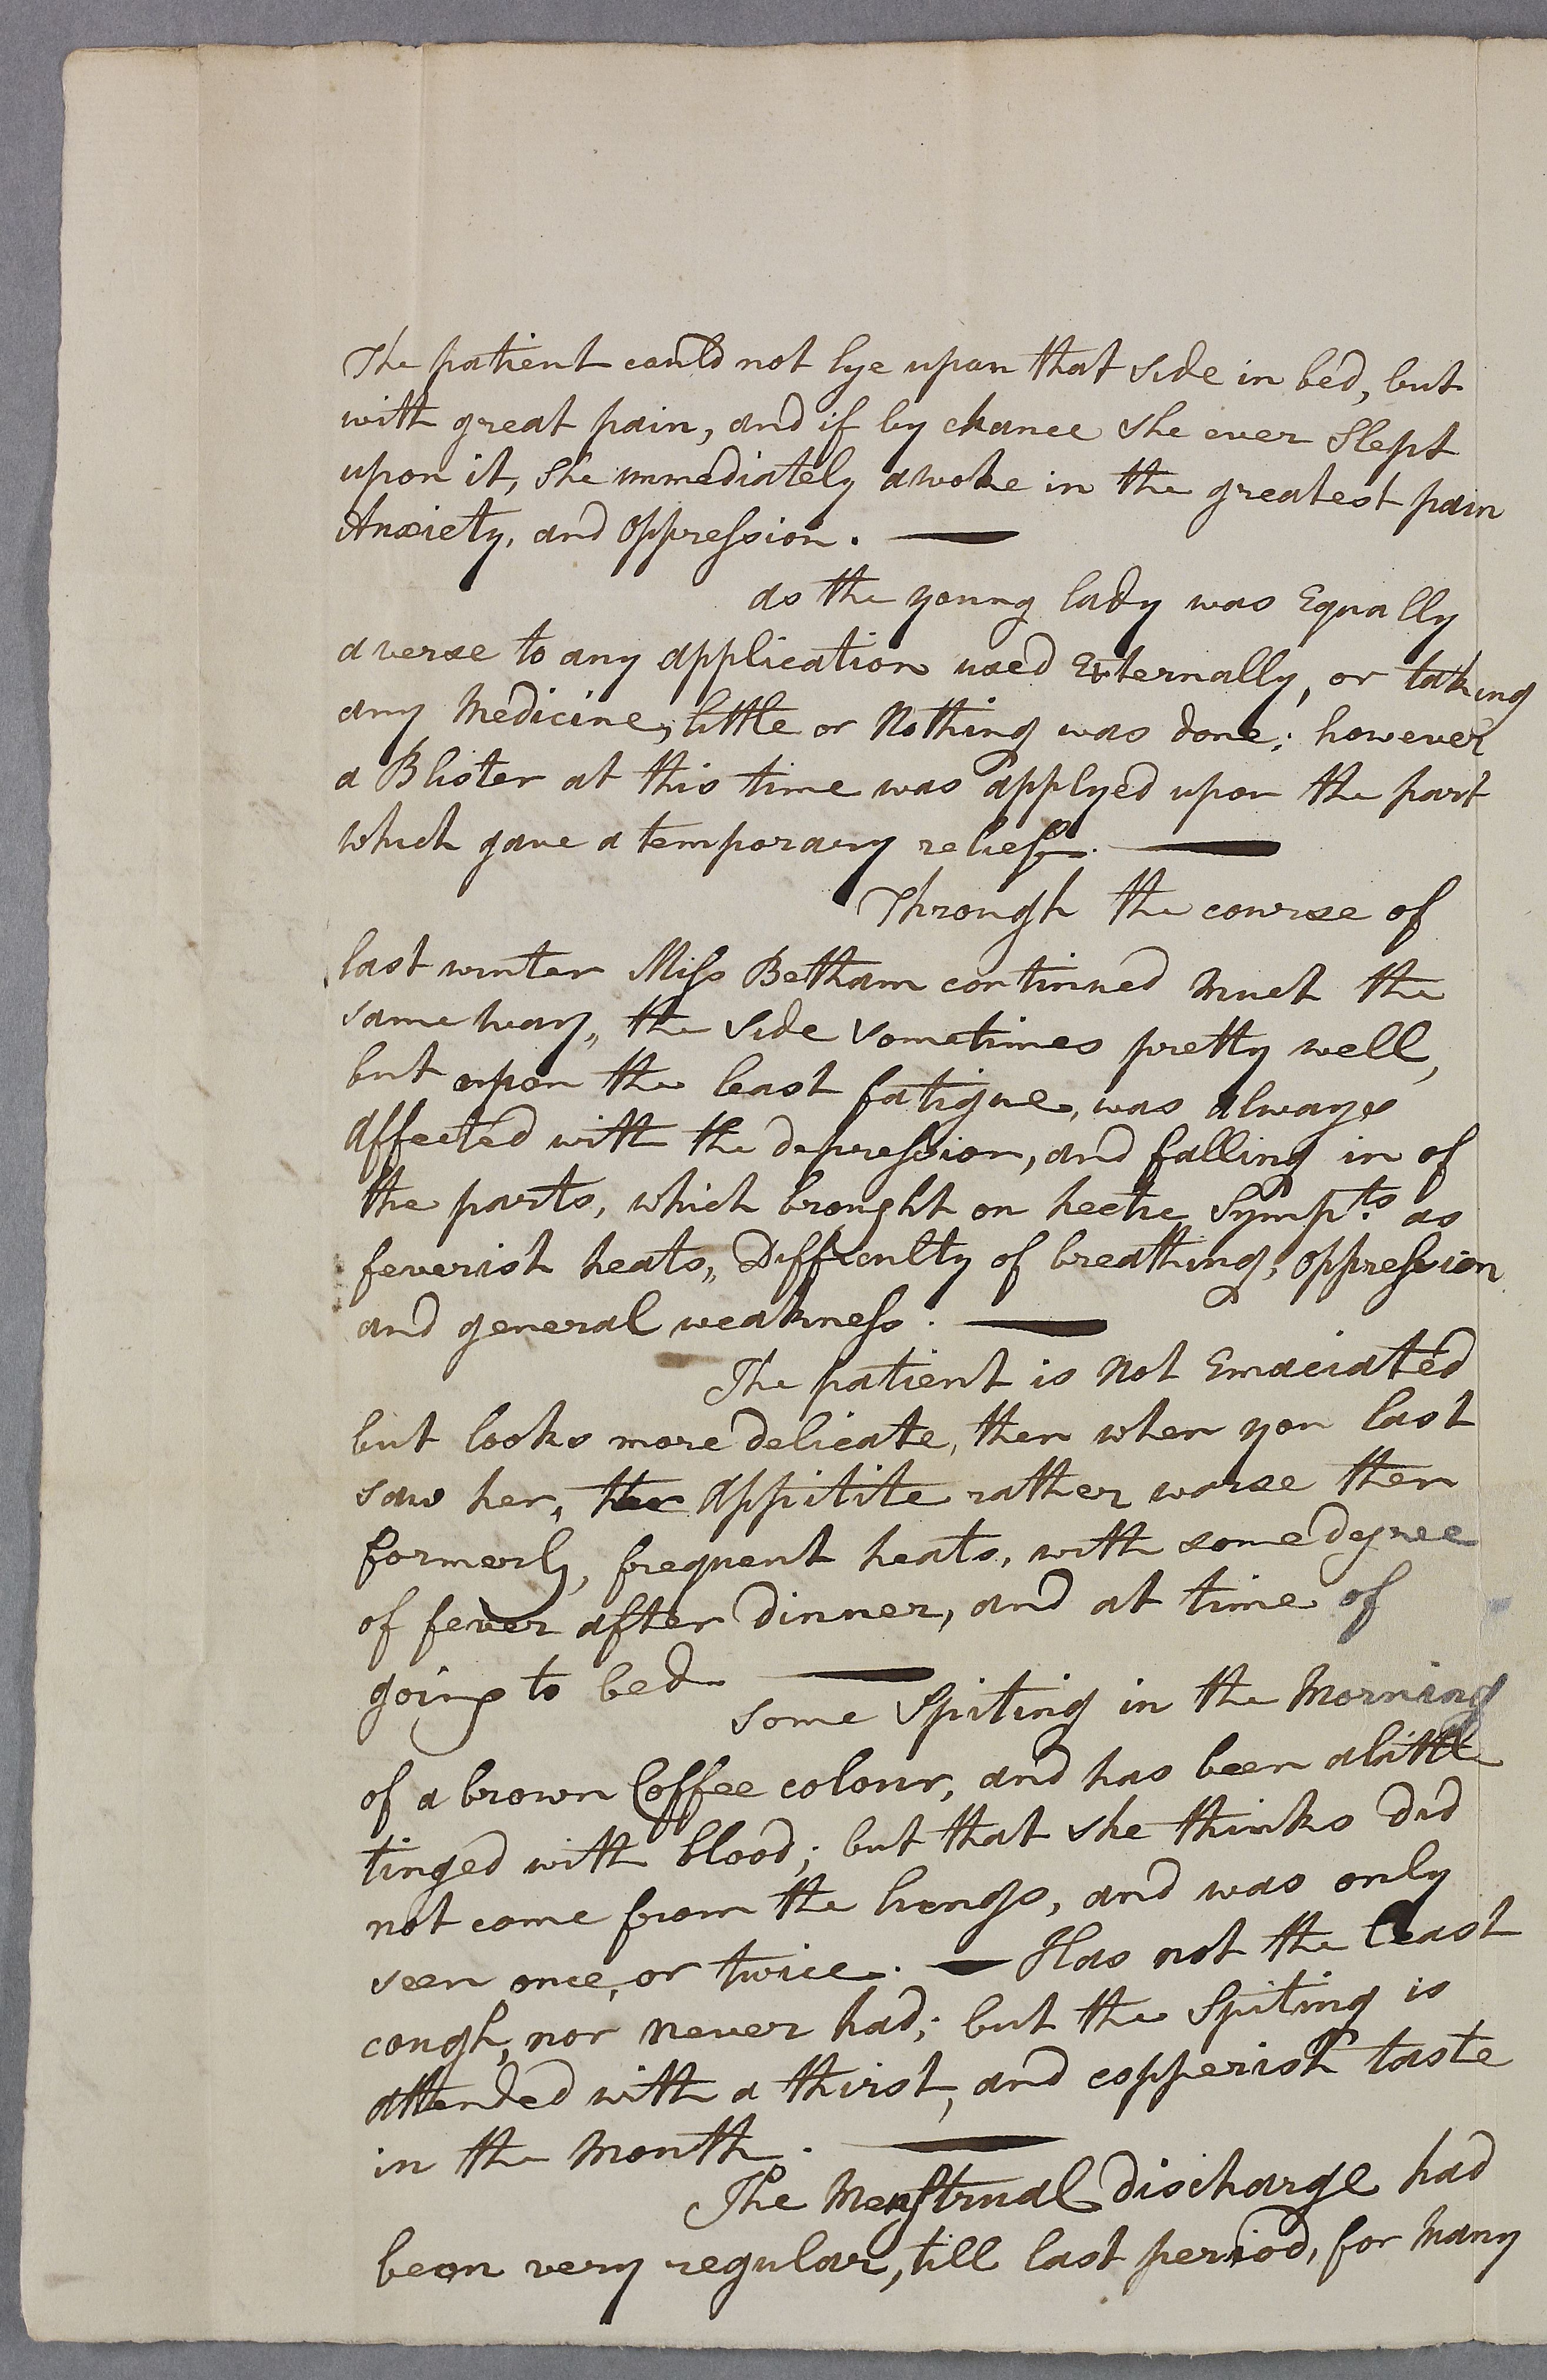 The patient could not lye upon that side in bed, but
with great pain, and if by chance she ever Slept
upon it, She immediately awoke in the greatest pain
Anxiety, and Oppression. —
as the young lady was Equally
averse to any application used Externally, or taking
any Medicine, little or Nothing was done; however
a Blister at this time was applyed upon the part
which gave a temporary relief. —
Through the course of
last winter Miss Betham continued Much the
same way, the side sometimes pretty well,
but upon the least fatigue, was always
affected with the depression, and falling in of
the parts, which brought on hectic Symp.ts as
feverish heats, Difficulty of breathing, oppression
and general weakness. —
The patient is Not Emaciated
but looks more delicate, then when you last
saw her, her Appitite rather worse then
formerly, frequent heats, with some degree
of fever after dinner, and at time of
going to bed —
some Spiting in the Morning
of a brown Coffee colour, and has been a little
tinged with blood; but that she thinks did
not come from the lungs, and was only
seen once, or twice. — Has not the least
cough, nor never had; but the Spiting is
attended with a thirst, and copperish taste
in the Mouth. —
The Menstrual discharge had
been very regular, till last period, for Many